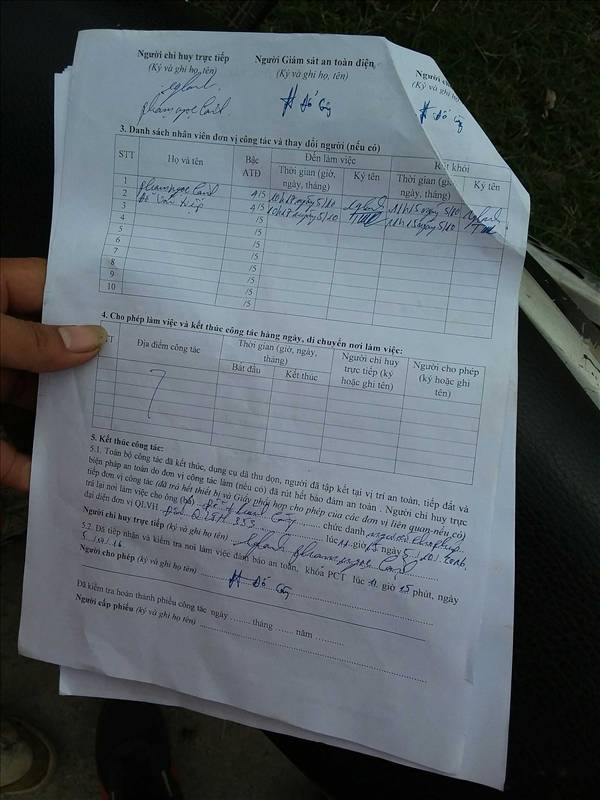 Người chỉ huy trực tiếp Người Giám sát an toàn điện Người
(Ký và ghi họ, tên) (Ký và ghi họ, tên) (Ký và ghi
3. Danh sách nhân viên đơn vị công tác và thay đổi người (nếu có)
STT Họ và tên Bậc ATĐ Đến làm việc Rút khỏi
Thời gian (giờ, ngày, tháng) Ký tên Thời gian (giờ, ngày, tháng) Ký tên
1 4/5 10h18 ngày 5/10 11h15 ngày 5/10
2 4/5 10h18 ngày 5/10 11h15 ngày 5/10
3 /5
4 /5
5 /5
6 /5
7 /5
8 /5
9 /5
10 /5
4. Cho phép làm việc và kết thúc công tác hàng ngày, di chuyển nơi làm việc:
TT Địa điểm công tác Thời gian (giờ, ngày, tháng) Người chỉ huy trực tiếp (ký hoặc ghi tên) Người cho phép (ký hoặc ghi tên)
Bắt đầu Kết thúc
5. Kết thúc công tác:
5.1. Toàn bộ công tác đã kết thúc, dụng cụ đã thu dọn, người đã tập kết tại vị trí an toàn, tiếp đất và
biện pháp an toàn do đơn vị công tác làm (nếu có) đã rút hết bảo đảm an toàn . Người chỉ huy trực
tiếp đơn vị công tác (đã trả hết thiết bị và Giấy phối hợp cho phép của các đơn vị liên quan-nếu có)
trả lại nơi làm việc cho ông (bà) chức danh người cho phép
đại diện đơn vị QLVH lúc 11 giờ 15 ngày 5/10/2016
Người chỉ huy trực tiếp (ký và ghi họ tên)
5.2. Đã tiếp nhận và kiểm tra nơi làm việc đảm bảo an toàn, khóa PCT lúc 11 giờ 15 phút, ngày
5/10/16
Người cho phép (ký và ghi họ tên)
Đã kiểm tra hoàn thành phiếu công tác ngày ........ tháng ...... năm .........
Người cấp phiếu (ký và ghi họ tên)